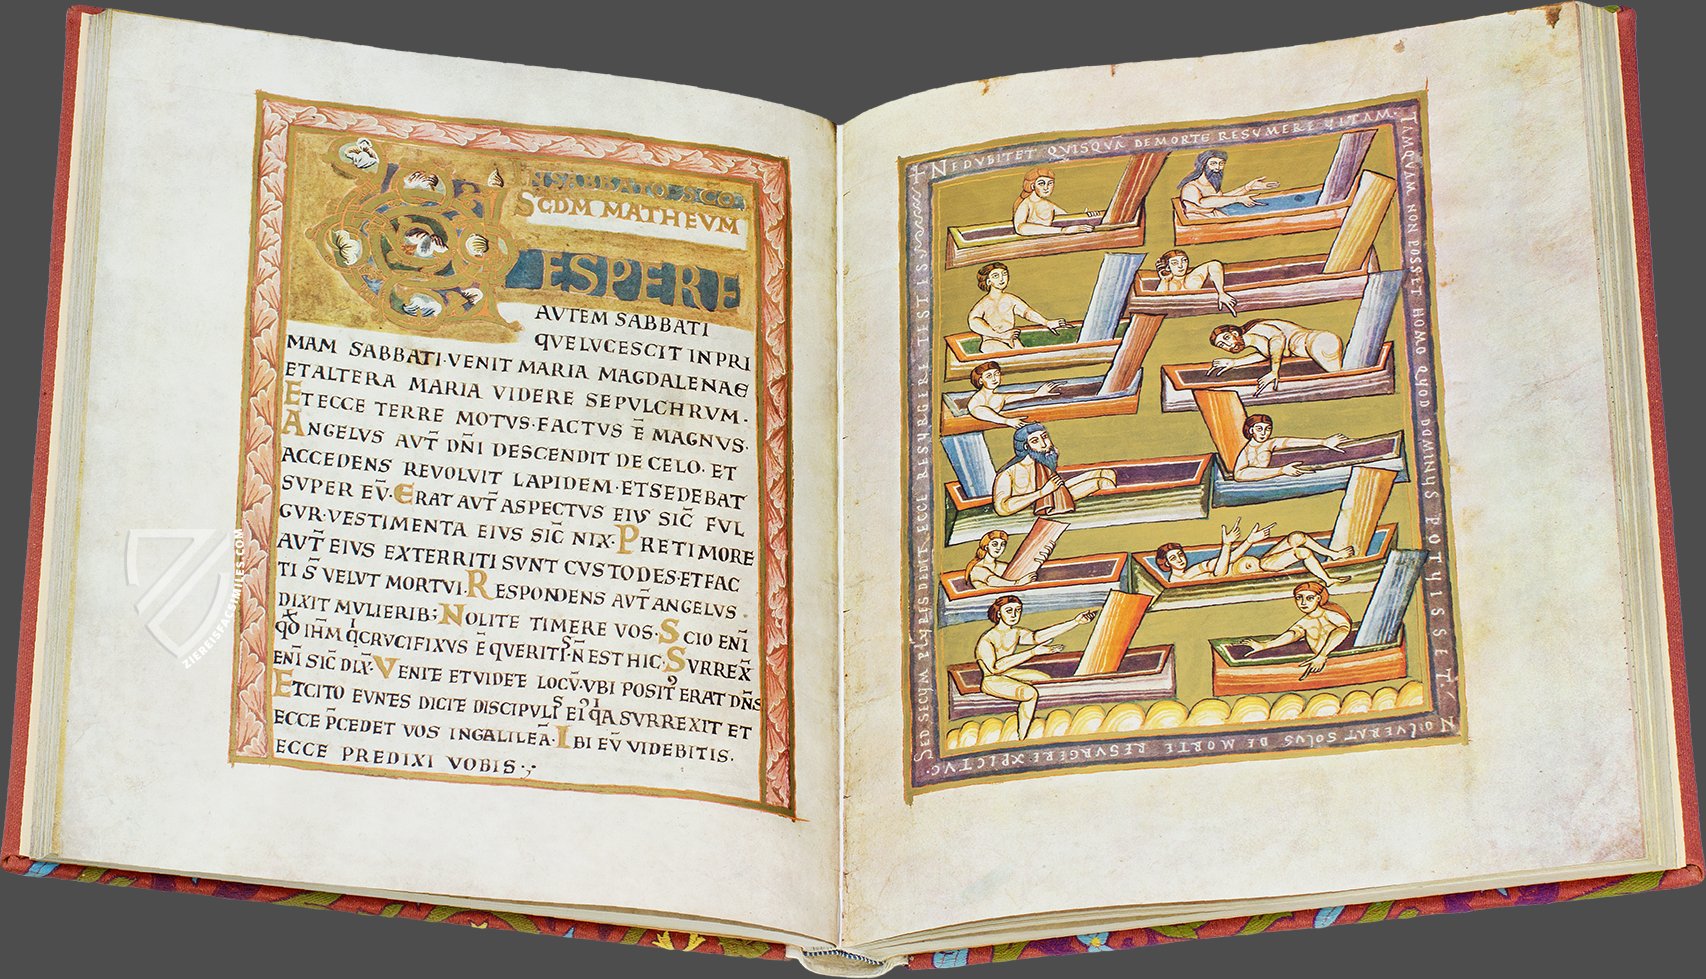 IN SABBATO SCO
SCDM MATHEVM
VESPERE
AVTEM SABBATI
QVE LVCESCIT IN PRI
MAM SABBATI · VENIT MARIA MAGDALENAE
ET ALTERA MARIA VIDERE SEPVLCHRVM ·
ET ECCE TERRE MOTVS · FACTVS Ē MAGNVS ·
ANGELVS AVT̄ DN̄I DESCENDIT DE CELO · ET
ACCEDENS REVOLVIT LAPIDEM · ET SEDEBAT
SVPER EV̄ · ERAT AVT̄ ASPECTVS EIVS SIC̄ FVL
GVR · VESTIMENTA EIVS SIC̄ NIX · PRE TIMORE
AVT̄ EIVS EXTERRITI SVNT CVSTODES · ET FAC
TI S̄ VELVT MORTVI · RESPONDENS AVT̄ ANGELVS
DIXIT MVLIERIB; NOLITE TIMERE VOS · SCIO ENĪ
QĐ IHM̄ Q̇ CRVCIFIXVS Ē QVERITIS · N̄ EST HIC · SVRREX̄
ENĪ SIC̄ DIX̄ · VENITE ET VIDETE LOCV̄ · VBI POSITꝰ ERAT DN̄S
ET CITO EVNTES DICITE DISCIPVLIS EIꝰ QIA SVRREXIT ET
ECCE P̄CEDET VOS IN GALILEĀ · IBI EV̄ VIDEBITIS ·
ECCE PREDIXI VOBIS ·;
+ NE DVBITET QVISQVĀ DE MORTE RESVMERE VITAM ·
TAMQVAM NON POSSIT HOMO QVOD DOMINVS POTVISSET
NOLVERAT SOLVS DE MORTE RESVRGERE XPICTVC ·
SED SECVM PLVRES DEDIT ECCE RESVRGERE TESTIS
ZIEREISFACSIMILES.COM